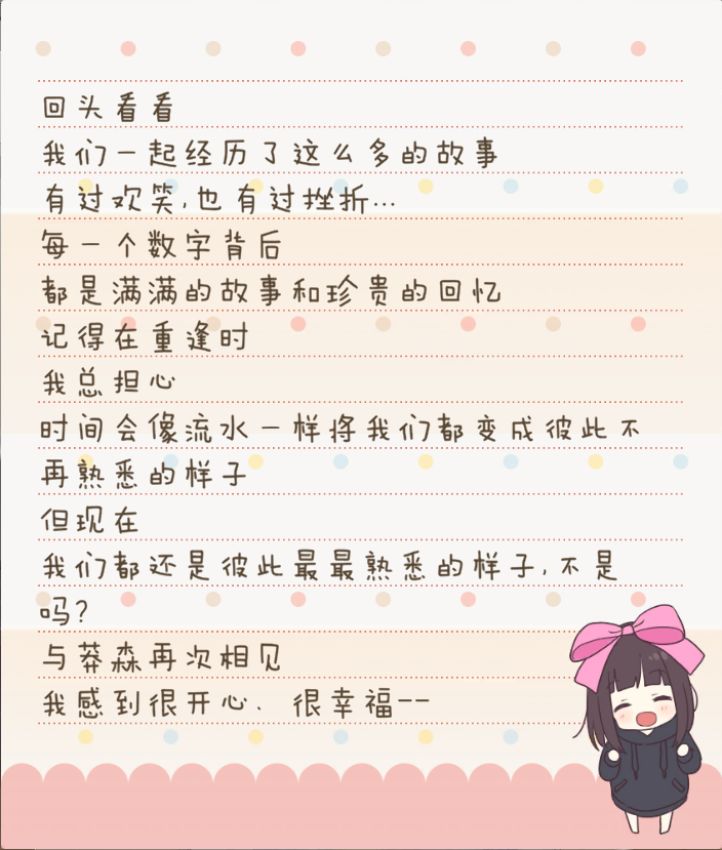 回头看看
我们一起经历了这么多的故事
有过欢笑,也有过挫折...
每一个数字背后
都是满满的故事和珍贵的回忆
记得在重逢时
我总担心
时间会像流水一样将我们都变成彼此不
再熟悉的样子
但现在
我们都还是彼此最最熟悉的样子,不是
吗?
与莽森再次相见
我感到很开心、很幸福--